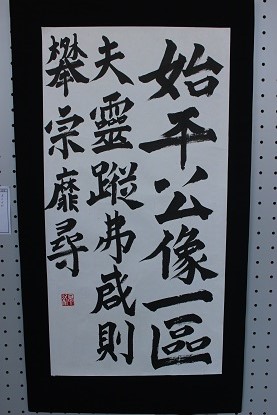 始平公像一區
夫靈蹤弗啟則
攀宗靡尋